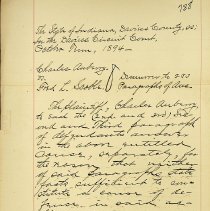 788
The State of Indiana, Daviess County, ss:
In the Daviess Circuit Court,
October Term, 1894.
Charles
vs
Fred L.
Demurrer to 2 & 3
Paragraphs of Ans.
The Plaintiff, Charles
to each the 2nd and 3rd,
ond and Third paragraph
of defendants answer
in the above entitled
cause, separately, for
the reason that neither
of said paragraphs state
facts sufficient to con-
stitute a cause of de-
fense, in said